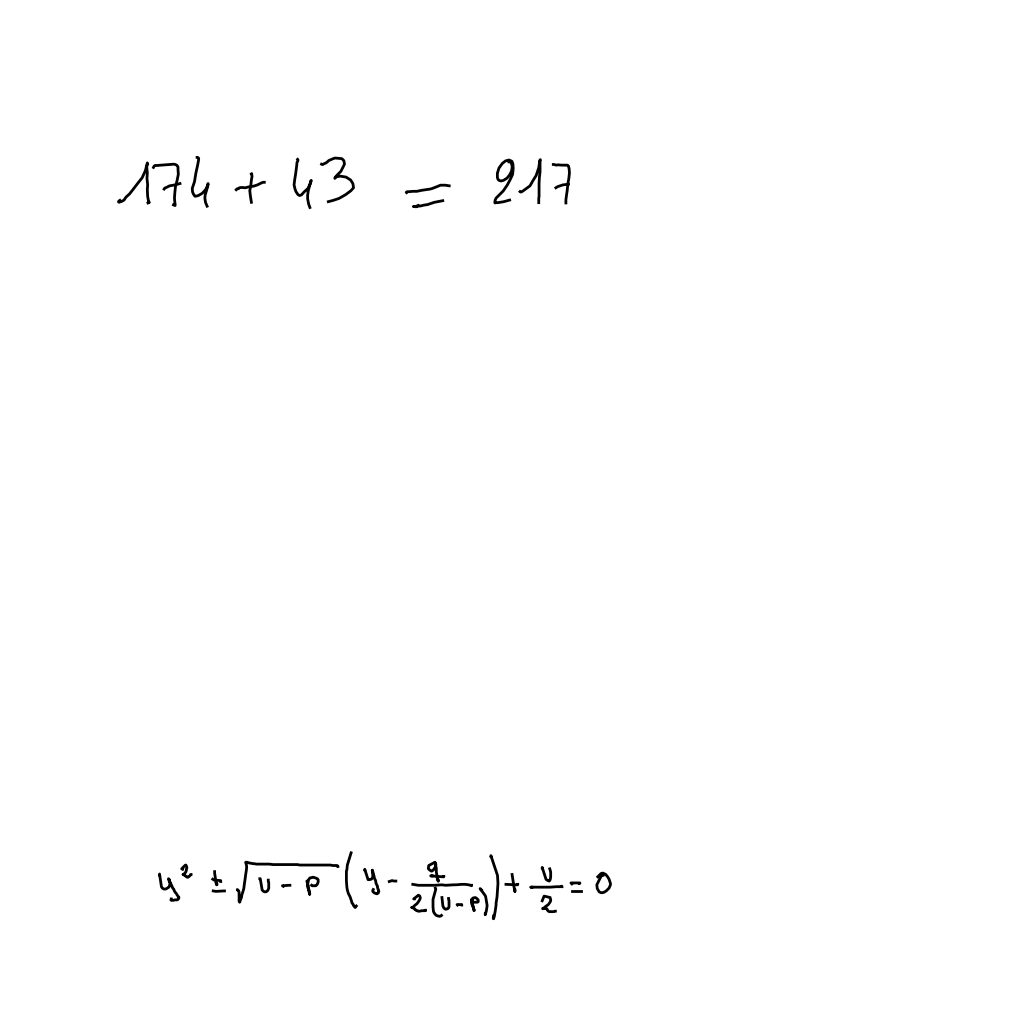 174 + 43 = 217
y² ± √(u - p) (y - q/(2(u-p))) + u/2 = 0